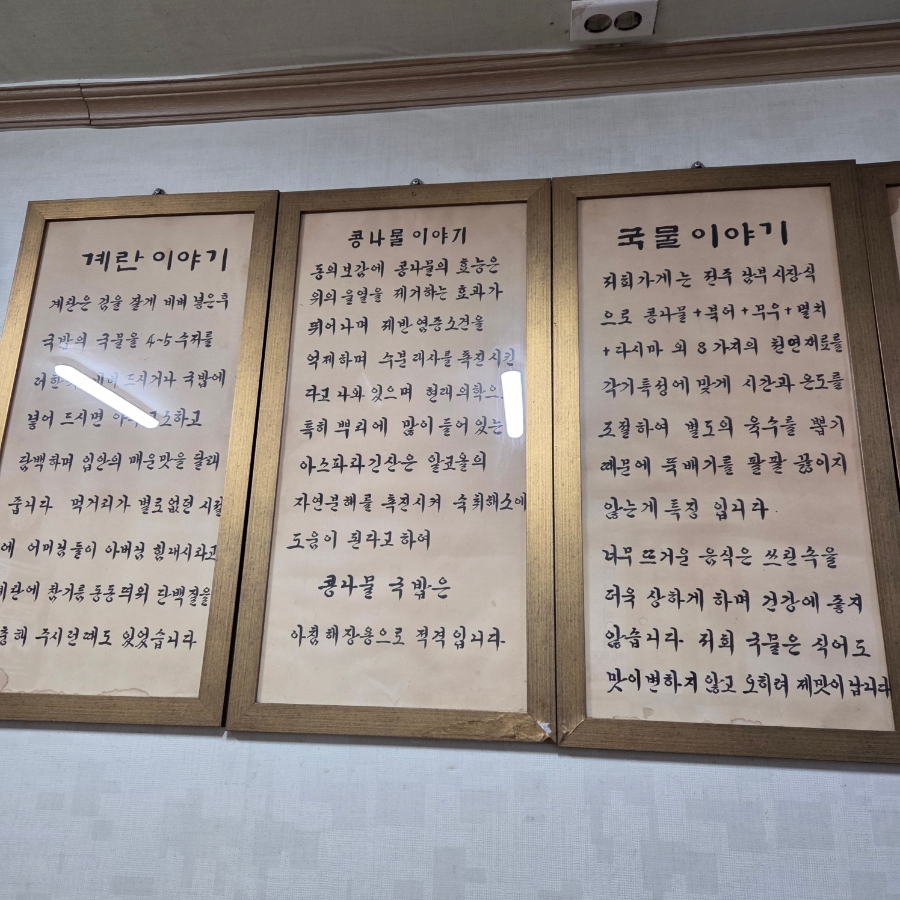 계란 이야기
계란은 김을 잘게 비벼 넣은후
국밥의 국물을 4~5 수저를
드시거나 국밥에
넣어 드시면 고소하고
담백하며 입안의 매운맛을 달래
줍니다 먹거리가 별로없던 시절
에 어머님들이 아버님 힘내시라고
계란에 참기름 동동 띄워 단백질을
충해 주시던 때도 있었습니다
콩나물 이야기
동의보감에 콩나물의 효능은
위의 울열을 제거하는 효과가
뛰어나며 제반 염증소견을
억제하며 수분대사를 촉진시킨
라고 나와 있으며 현대 의학으로
특히 뿌리에 많이 들어 있는
아스파라긴산은 알코올의
자연분해를 촉진시켜 숙취해소에
도움이 된다고 하여
콩나물 국밥은
아침 해장용으로 적격입니다
국물 이야기
저희가게는 전주 남부시장식
으로 콩나물+북어+무우+멸치
+다시마 외 8가지의 천연재료를
각기특성에 맞게 시간과 온도를
조절하여 별도의 육수를 뽑기
때문에 뚝배기를 팔팔 끓이지
않는게 특징 입니다.
너무 뜨거운 음식은 쓰린속을
더욱 상하게 하며 건강에 좋지
않습니다 저희 국물은 식어도
맛이변하지 않고 오히려 제맛이 납니다